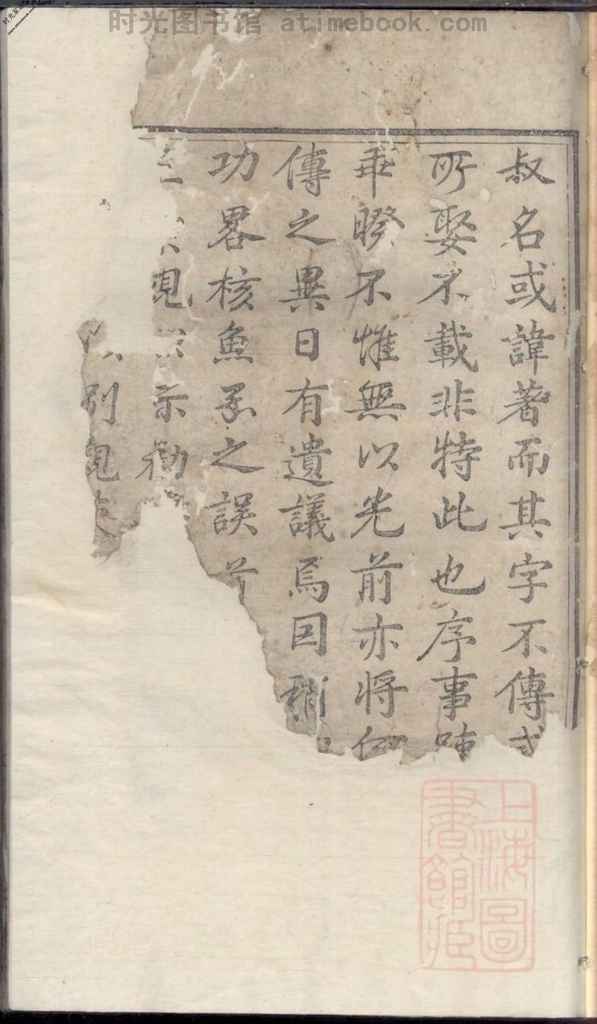 时光图书馆 atimebook.com
叔名或諱著而其字不傳
所娶不載非特此也序事
乖暌不惟無以光前亦將
傳之異日有遺議焉因稍
功畧核魚豕之誤
示勸
別
上海圖
書館藏